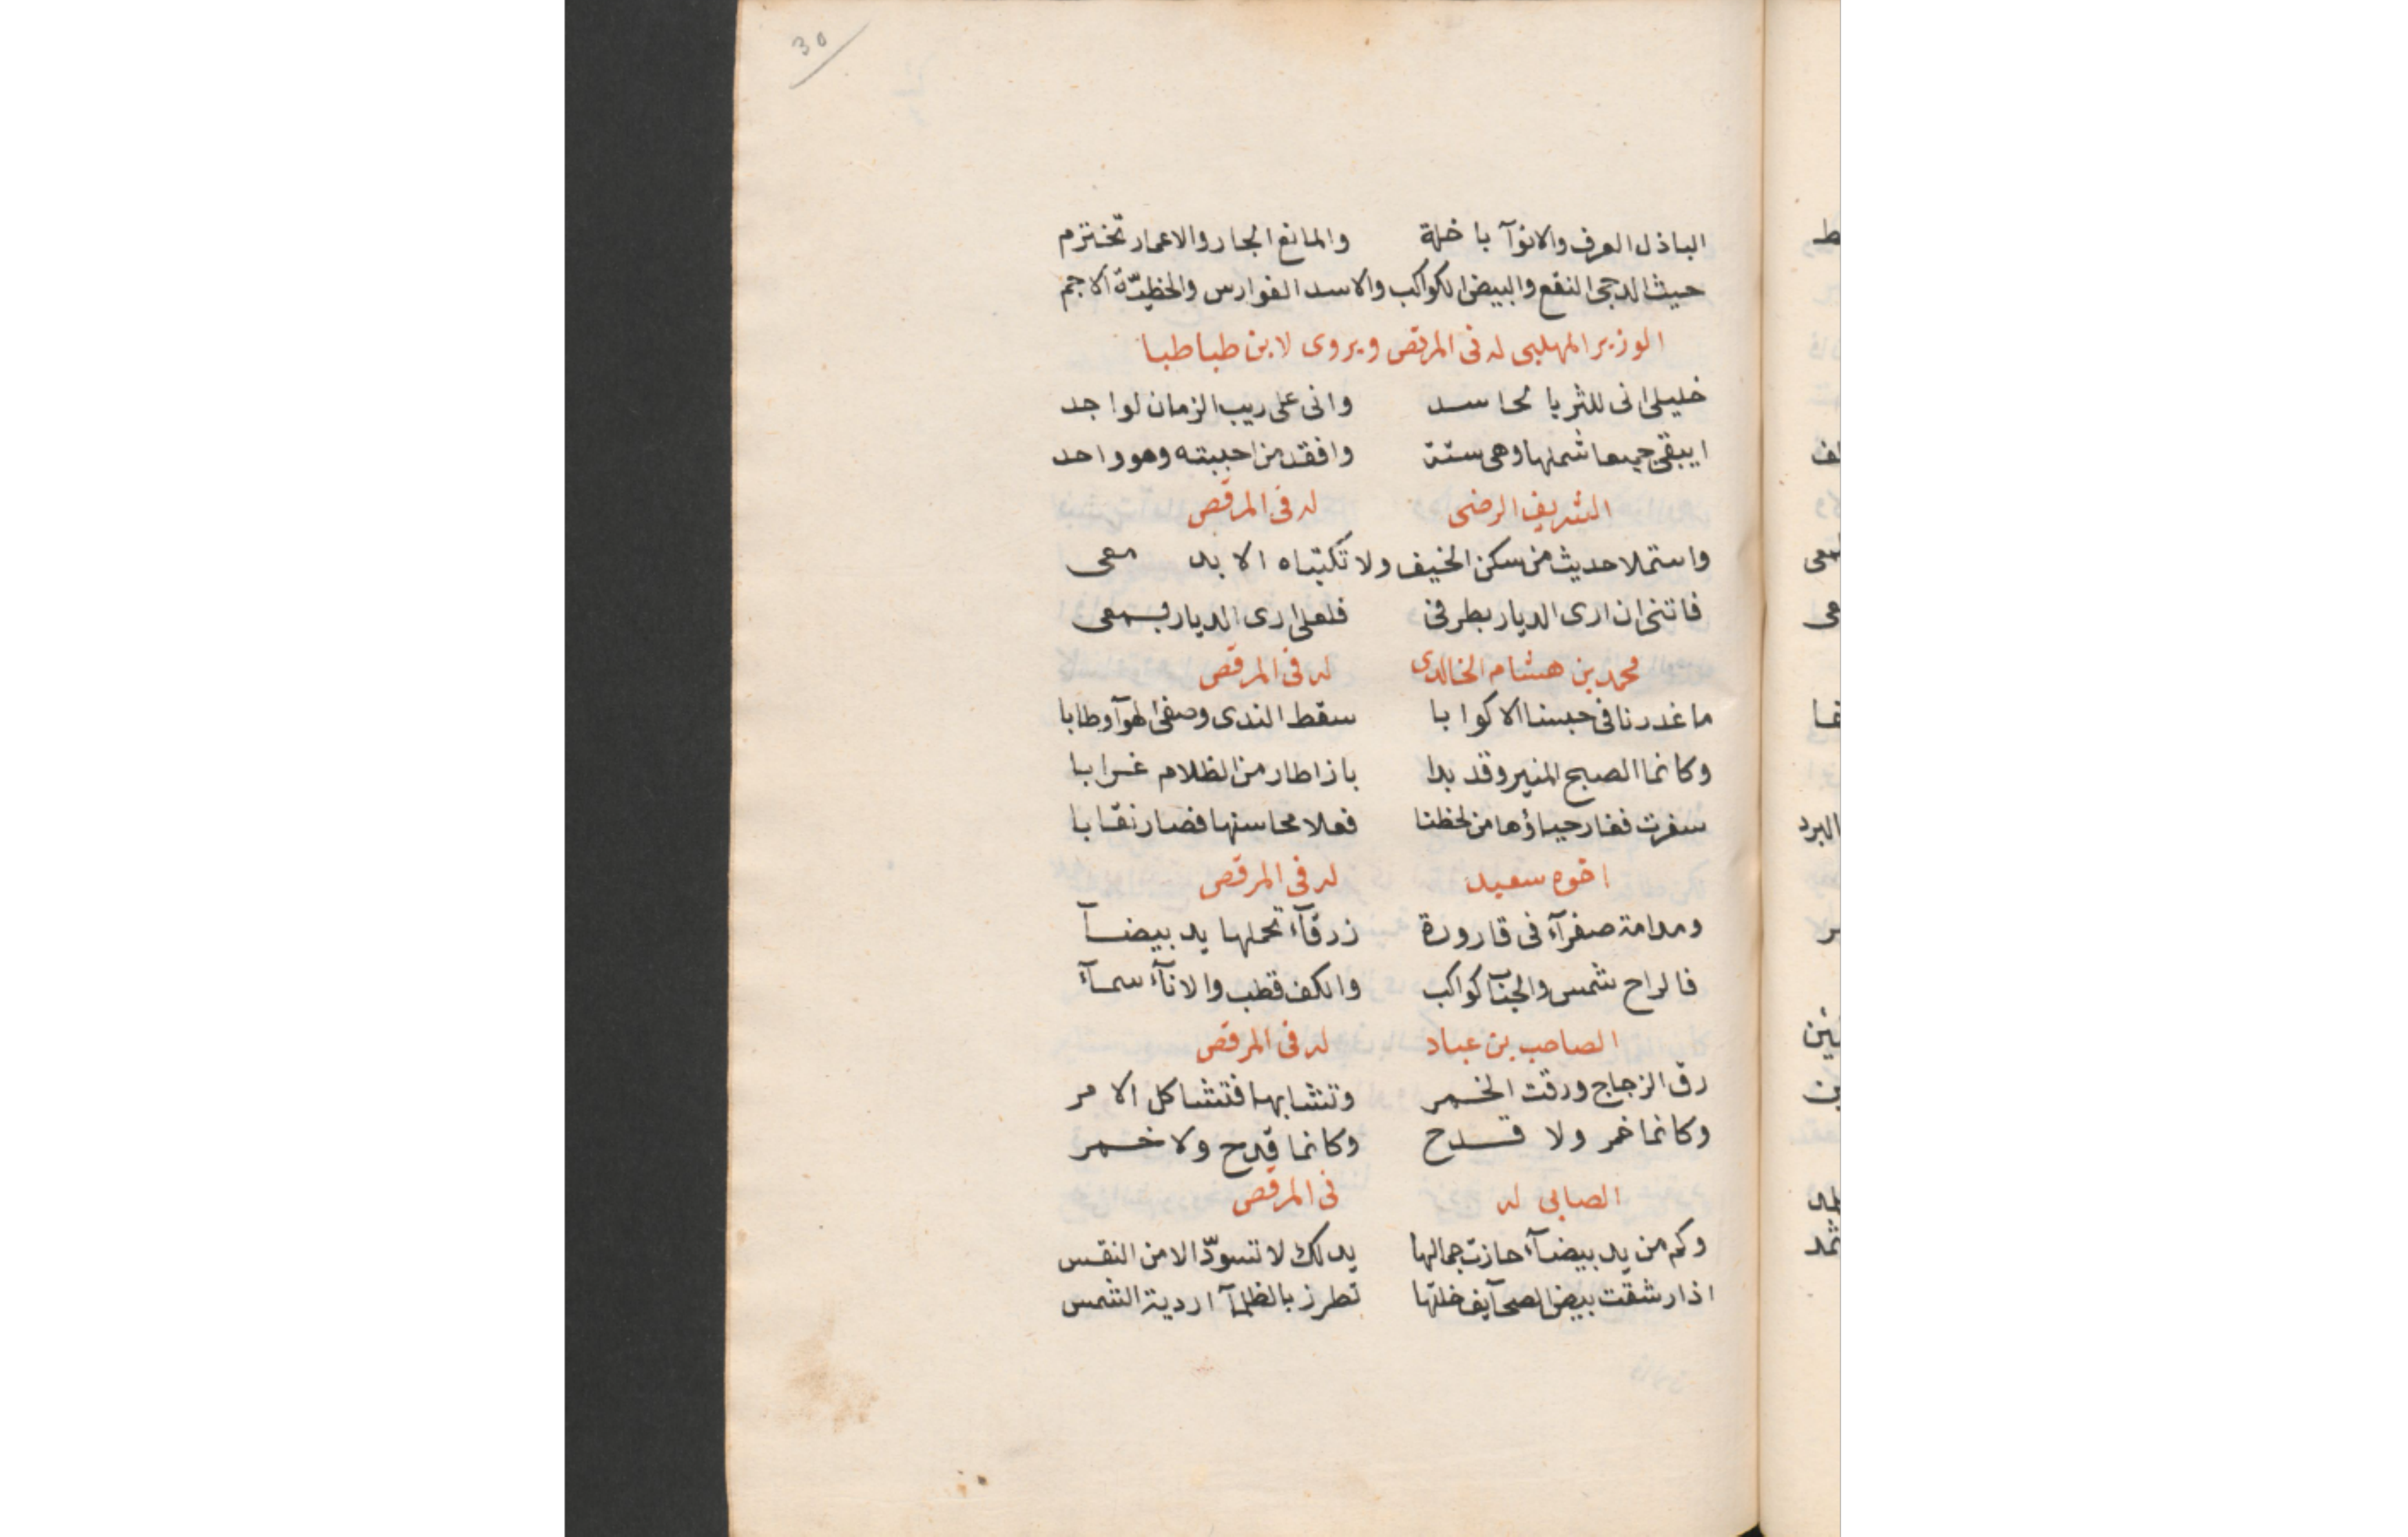 30
الباذل العرف والانوآ باخلة والمانع الجار والاعمار تخترم
حيث الدجى النقع والبيض الكواكب والاسد الفوارس والخطيّة الاجم
الوزير المهلبى له فى المرقص ويروى لابن طباطبا
خليلى انى للثريا لحاسد وانى على ريب الزمان لواجد
ايبقى جميعا شملها وهى ستة وافقد من احببته وهو واحد
الشريف الرضى له فى المرقص
واستملا حديث من سكن الخيف ولا تكتباه الا بد معى
فاتنى ان ارى الديار بطرفى فلعلى ارى الديار بسمعى
محمد بن هشام الخالدى له فى المرقص
ما غدرنا فى حبسنا الاكوابا سقط الندى وصفى الهوآ وطابا
وكانما الصبح المنير وقد بدا باز اطار من الظلام غرابا
سفرت فغار حياؤها من لحظنا فعلا محاسنها فصار نقابا
اخوه سعيد له فى المرقص
ومدامة صفرآء فى قارورة زرقآء تحملها يد بيضآ
فالراح شمس والحبآ كواكب والكف قطب والانآء سمآء
الصاحب بن عباد له فى المرقص
رق الزجاج ورقت الخمر وتشابها فتشاكل الامر
وكانما خمر ولا قدح وكانما قدح ولا خمر
الصابى له فى المرقص
وكم من يد بيضآء حازت جمالها يد لك لا تسودّ الا من النقس
اذا رشقت بيض الصحآيف خلتها تطرز بالظلمآ اردية الشمس